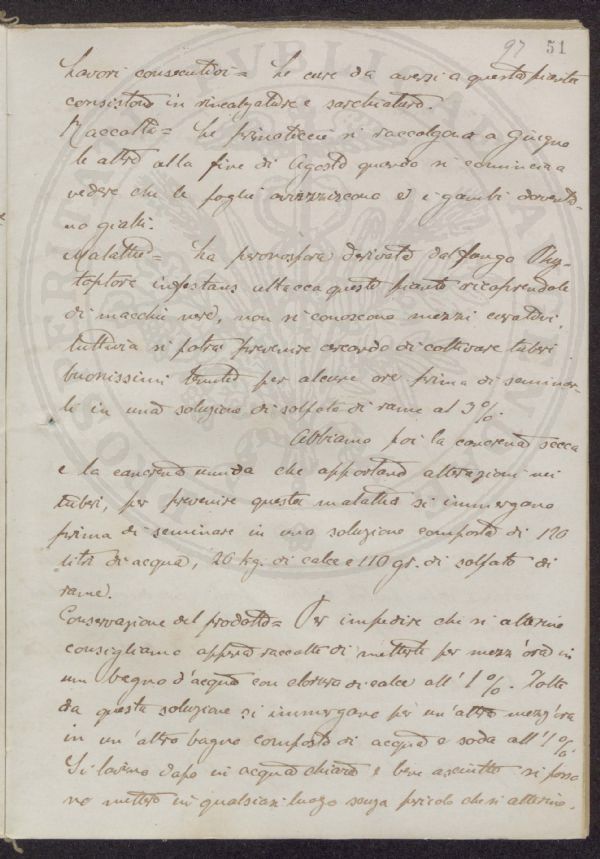 97 51
Lavori consecutivi = Le cure da aversi a questa pianta
consistono in rincalzature e sarchiature.
Raccolta = Le primaticcie si raccolgono a Giugno
le altre alla fine di Agosto quando si comincia a
vedere che le foglie avvizziscono ed i gambi divento-
no gialli.
Malattie = La peronospora derivata dal fungo Phy-
toptore infestans attacca queste piante ricoprendole
di macchie nere, non si conoscono mezzi curativi,
tuttavia si potrà prevenire cercando di coltivare tuberi
buonissimi tenuti per alcune ore prima di seminar-
li in una soluzione di solfato di rame al 3%.
Abbiamo poi la cancrena secca
e la cancrena umida che apportano alterazioni nei
tuberi, per prevenire questa malattia si immergono
prima di seminare in una soluzione composta di 120
litri di acqua, 26 kg. di calce e 110 gr. di solfato di
rame.
Conservazione del prodotto = Per impedire che si alterino
consigliamo appena raccolte di metterle per mezz'ora in
un bagno d'acqua con cloruro di calce all'1%. Tolte
da questa soluzione si immergono per un'altra mezz'ora
in un'altro bagno composto di acqua e soda all'1%.
Si lavano dopo in acqua chiara e bene asciutte si posso
no mettere in qualsiasi luogo senza pericolo che si alterino.